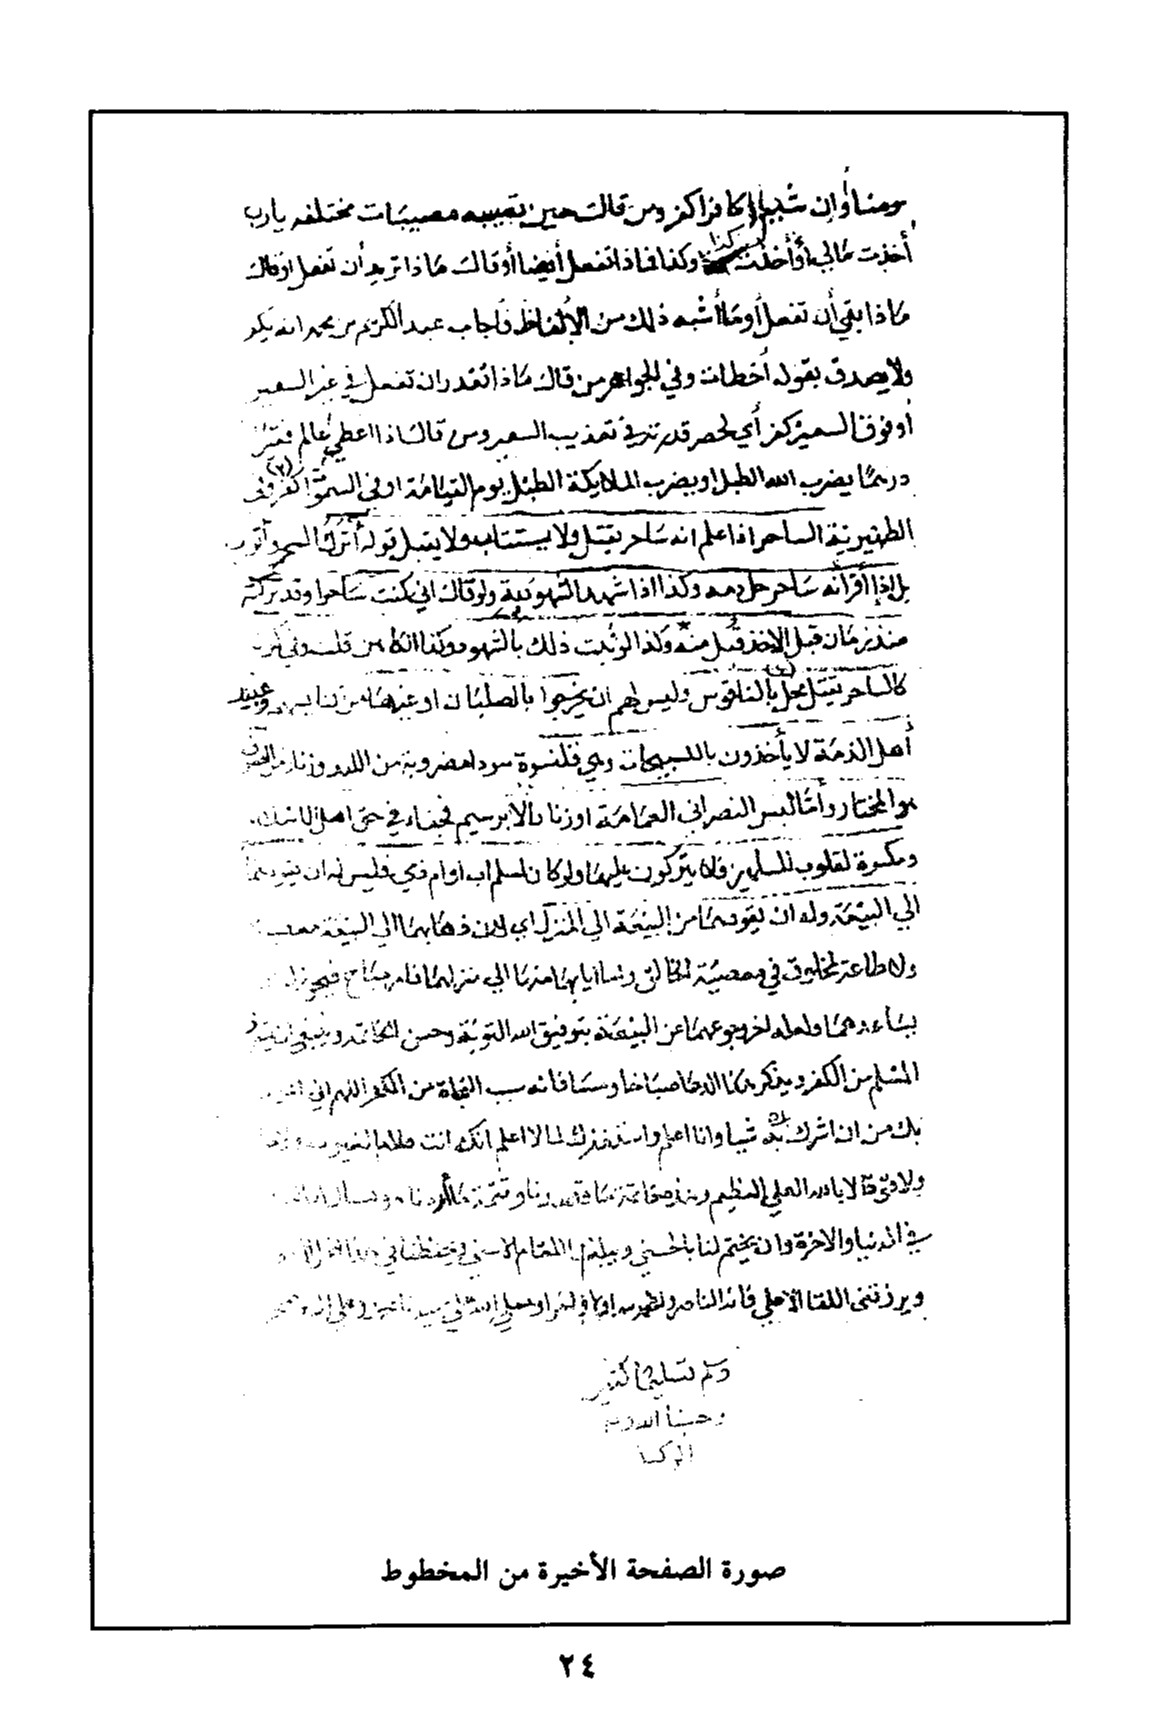 مومنا وإن شئت كافرا كفر ومن قالت حين تصيبه مصيبات مختلفه يارب
أخذت مالي وأخذت كذا وكذا فماذا تفعل أيضا أوقالت ماذا تريد أن تفعل اوقال
ماذا بقي أن تفعل أوما أشبه ذلك من الألفاظ فأجاب عبد الكريم بن محمد انه يكفر
ولا يصدق بقوله أخطات وفي الجواهر من قال ماذا تقدر ان تفعل في غير السعير
أوفوق السعير كفر أي لحصر قدرته في تعذيب السعير ومن قال اذا اعطي عالم فقير
درهما يضرب الله الطبل او يضرب الملايكة الطبل يوم القيامة اوفي السموات كفر وفي
الظهيرية الساحر اذا علم انه ساحر يقتل ولا يستتاب ولا يقبل قوله أترك السحر وأتوب
بل إذا أقر انه ساحر حل دمه وكذا اذا شهد الشهود به ولو قال اني كنت ساحرا وقد تركته
منذ زمان قبل الاخذ قبل منه وكذا لو ثبت ذلك بالشهود وكذا الكاهن قلت وفي
كالساحر يقتل بالناقوس وليس لهم ان يخرجوا بالصلبان او غيرها من كنايسهم وعبيد
أهل الذمة لا يأخذون بالكستيجات وهي قلنسوة سودا مضروبة من اللبد وزنار من الصوف
هو المختار وأما لبس النصراني العمامة اوزنار الابريسم فجفاء في حق اهل الاسلام
ومكسرة لقلوب المسلمين فلا يتركون عليها ولو كان لمسلم اب اوام ذمي فليس له ان يقودهما
الي البيعة وله ان يقودهما من البيعة الي المنزل اي لان ذهابهما الي البيعة معصية
ولا طاعة لمخلوق في معصية الخالق واما ايابهما منها الي منزلهما فامر مباح فيجوز له ان
يساعدهما ولعله لخروجهما عن البيعة بتوفيق الله التوبة وحسن الخاتمة وينبغي ان يتعوذ
المسلم من الكفر ويذكر هذا الدعا صباحا ومسا فانه سبب النجاة من الكفر اللهم اني اعوذ
بك من ان اشرك بك شيا وانا اعلم واستغفرك لما لا اعلم انك انت علام الغيوب ولا حول
ولا قوة الا بالله العلي العظيم وهذه خاتمة ما قصدنا وتتمة ما أردنا
في الدنيا والاخرة وان يختم لنا بالحسني ويبلغنا المقام الاسني
ويرزقنا اللقا الاعلي
وسلم تسليما كثيرا
وحسبنا الله ونعم
الوكيل
صورة الصفحة الأخيرة من المخطوط
٢٤